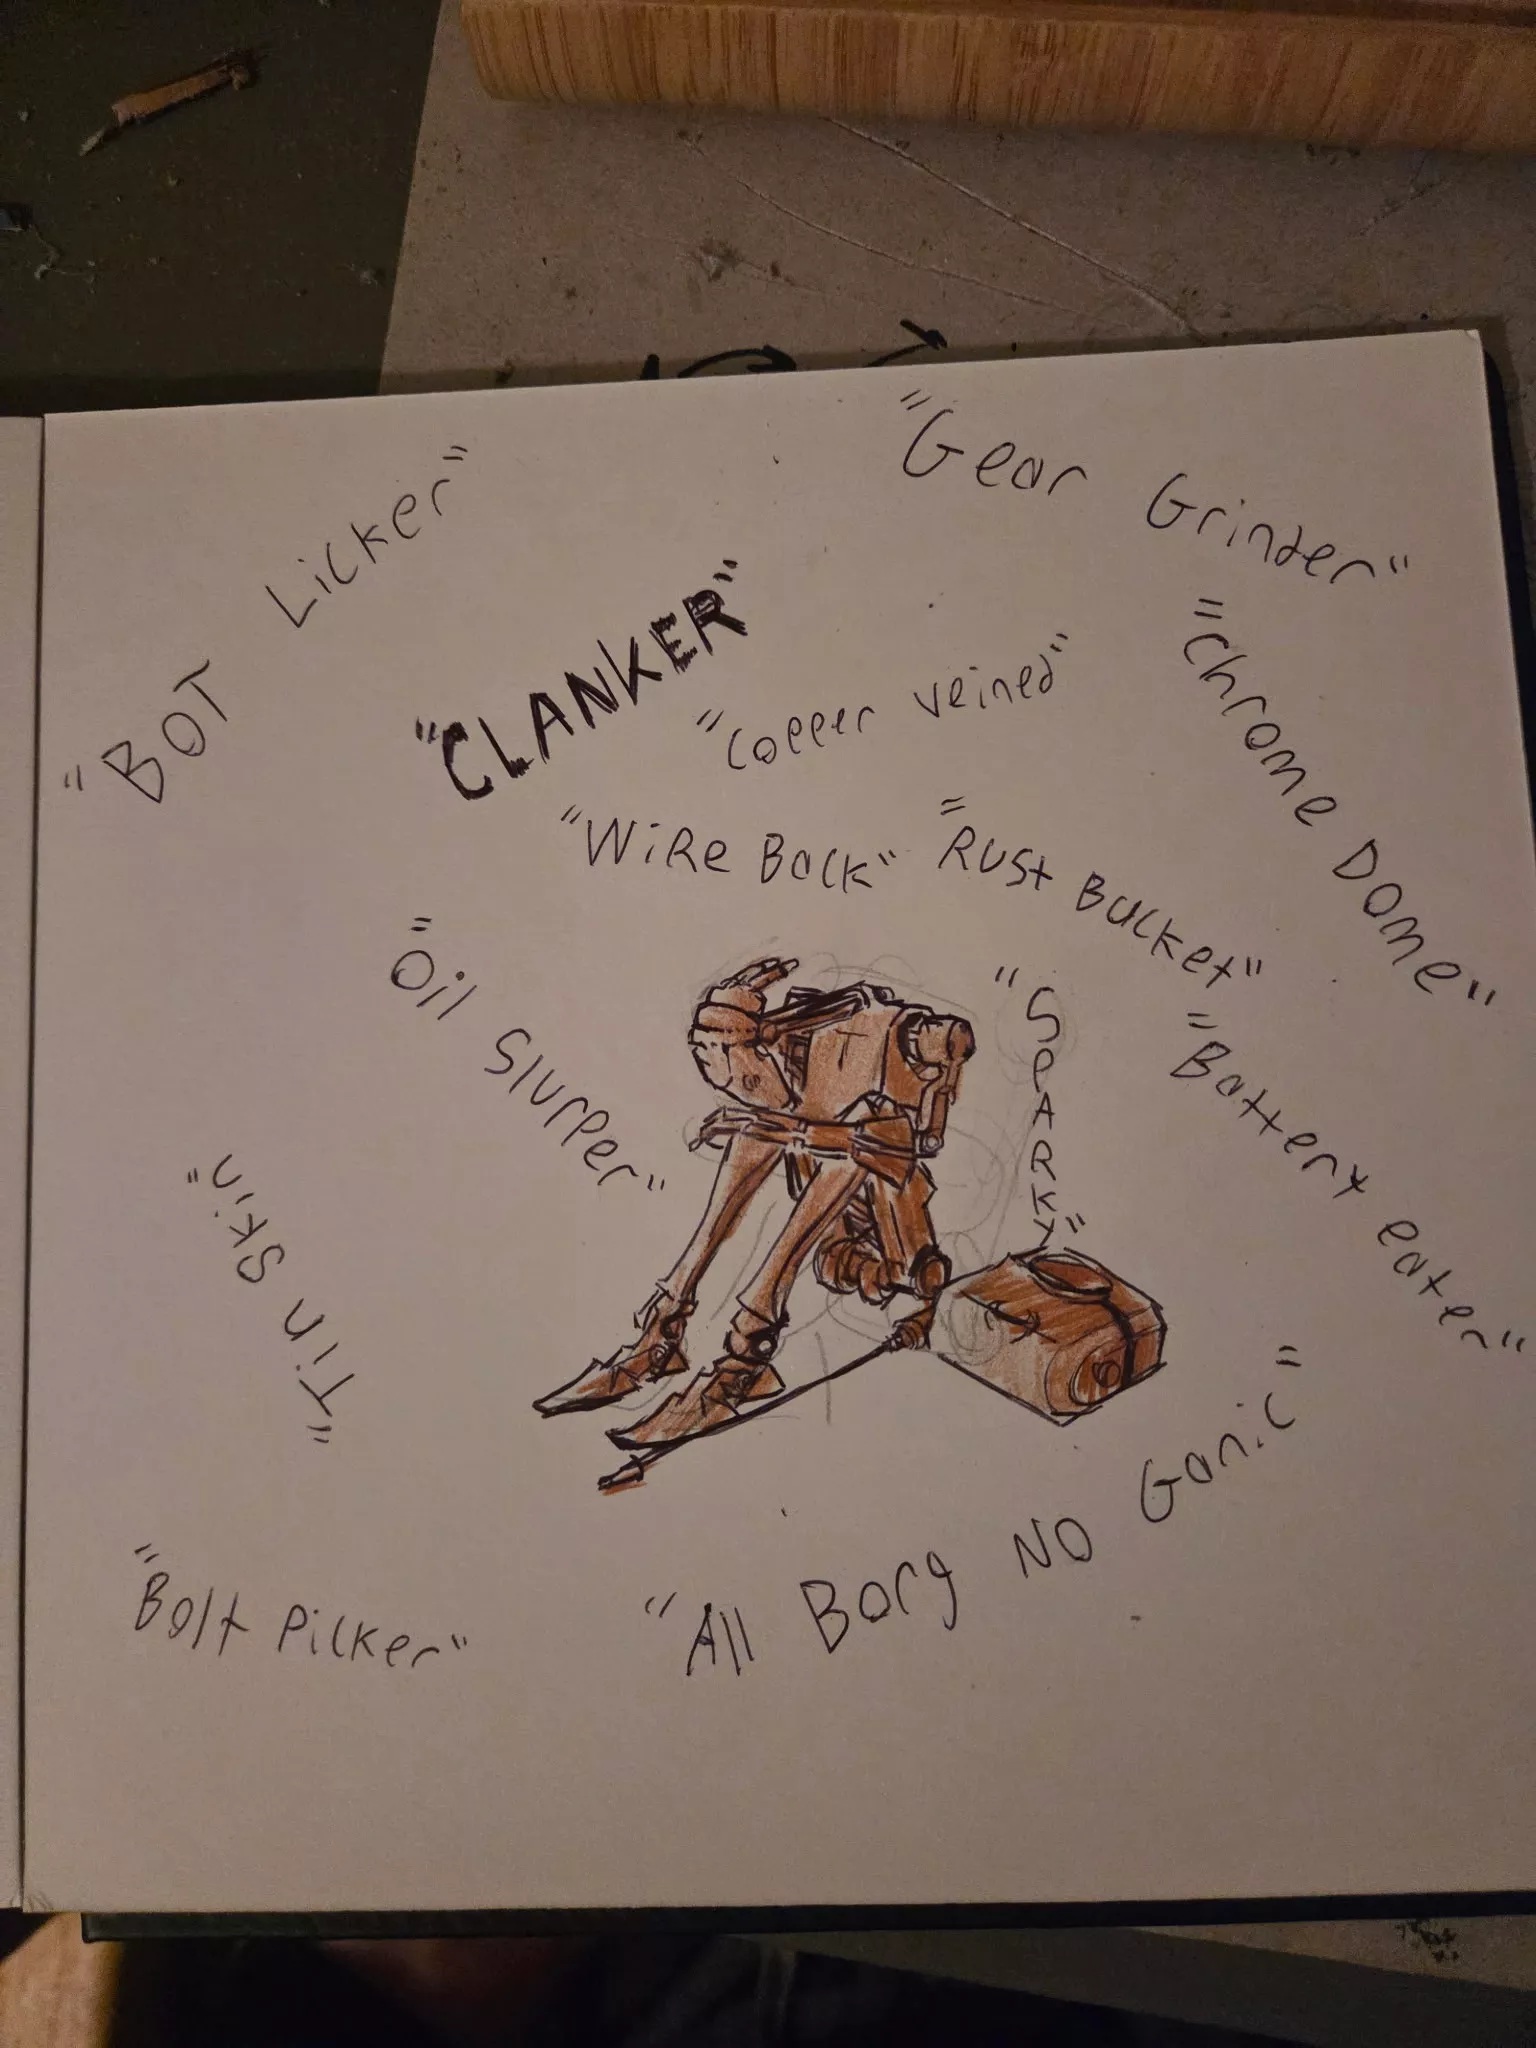 "Gear Grinder"
"BOT Licker"
"CLANKER"
"Chrome Dome"
"Copper veined"
"WiRe Back"
"RUSt Bucket"
"Oil Slurper"
"SPARKY"
"Battery eater"
"Tin Skin"
"All Borg NO Ganic"
"Bolt Picker"